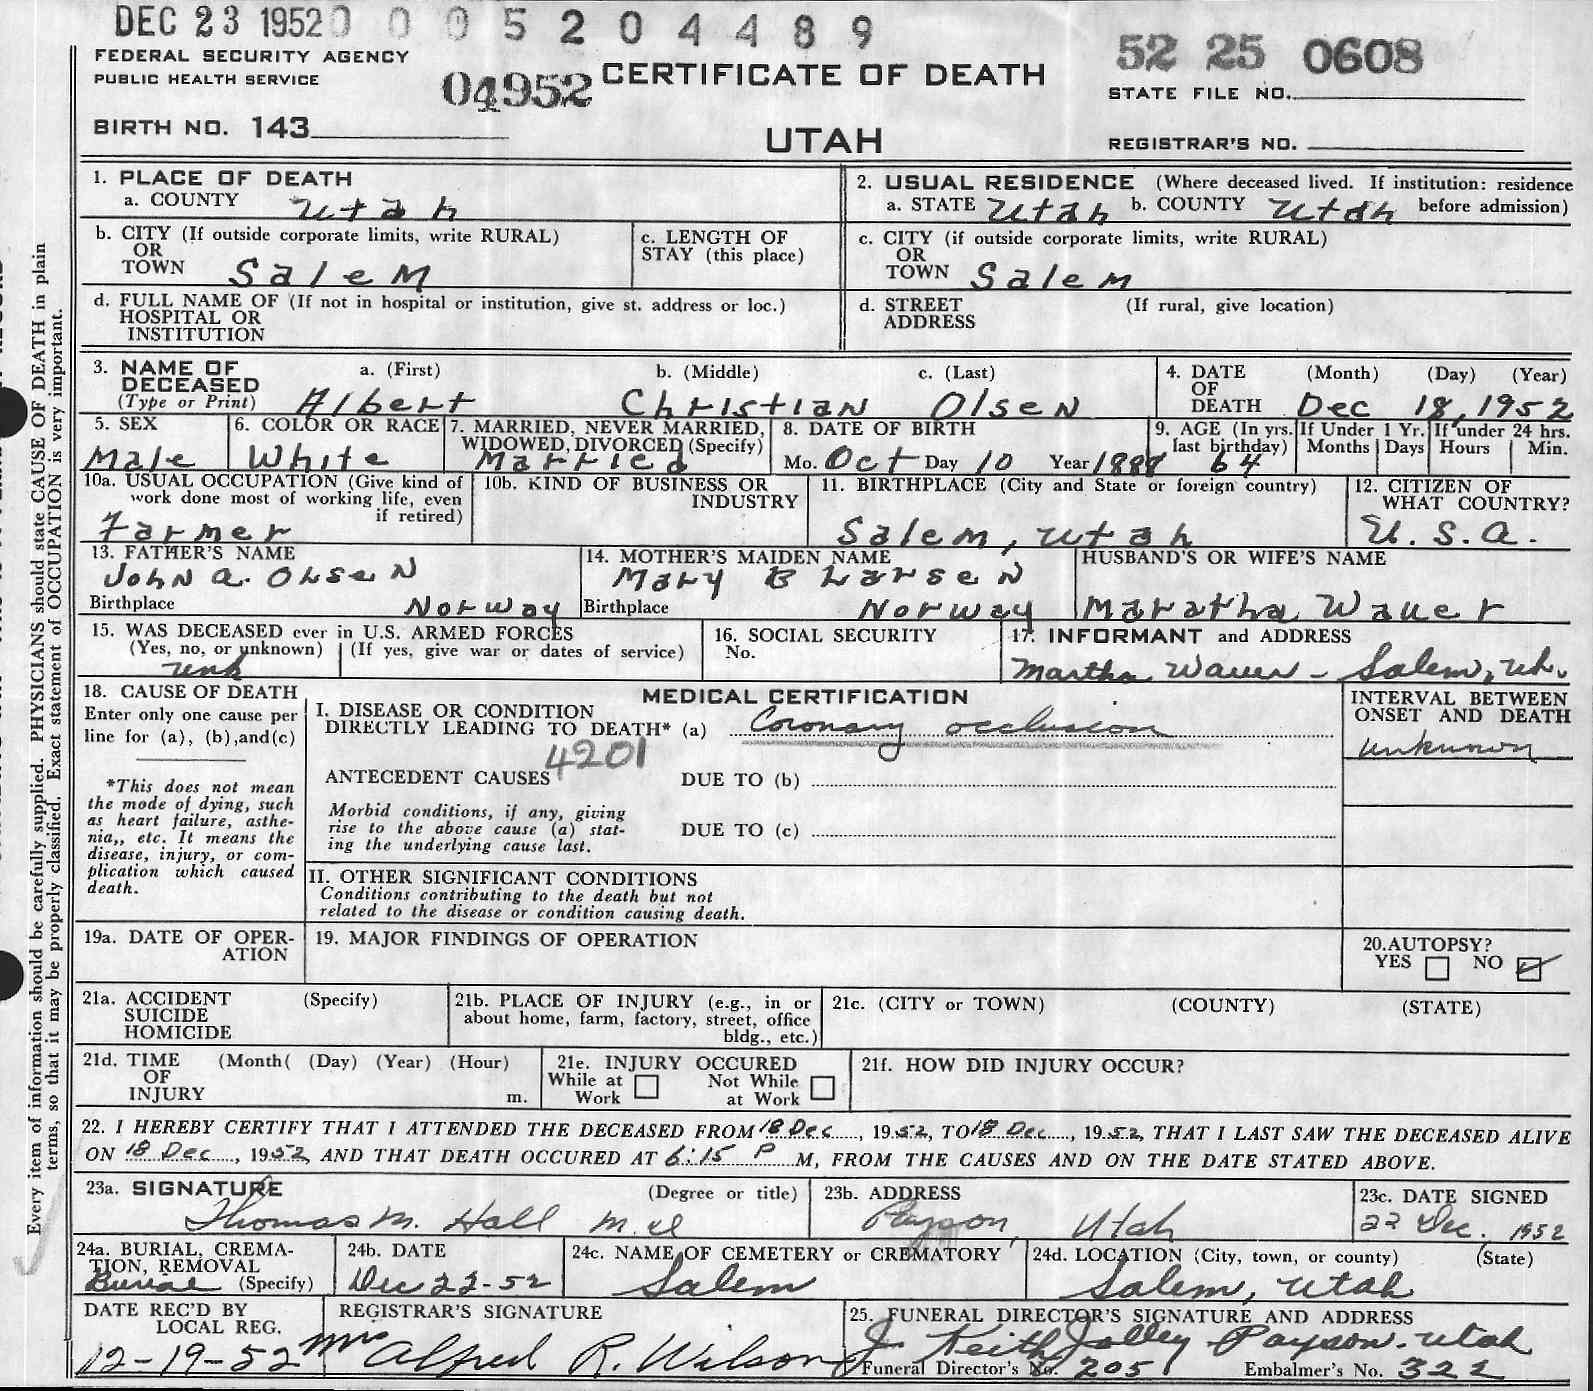 DEC 23 1952 0 0 0 5 2 0 4 4 8 9
FEDERAL SECURITY AGENCY
PUBLIC HEALTH SERVICE
04952 CERTIFICATE OF DEATH
UTAH
52 25 0608
STATE FILE NO.
BIRTH NO. 143
REGISTRAR'S NO.
1. PLACE OF DEATH
a. COUNTY Utah
2. USUAL RESIDENCE (Where deceased lived. If institution: residence
a. STATE Utah b. COUNTY Utah before admission)
b. CITY (If outside corporate limits, write RURAL)
OR
TOWN Salem
c. LENGTH OF
STAY (this place)
c. CITY (if outside corporate limits, write RURAL)
OR
TOWN Salem
d. FULL NAME OF (If not in hospital or institution, give st. address or loc.)
HOSPITAL OR
INSTITUTION
d. STREET (If rural, give location)
ADDRESS
3. NAME OF a. (First) b. (Middle) c. (Last)
DECEASED
(Type or Print) Albert Christian Olsen
4. DATE (Month) (Day) (Year)
OF
DEATH Dec 18, 1952
5. SEX
Male
6. COLOR OR RACE
White
7. MARRIED, NEVER MARRIED,
WIDOWED, DIVORCED (Specify)
Married
8. DATE OF BIRTH
Mo. Oct Day 10 Year 1888
9. AGE (In yrs.
last birthday)
64
If Under 1 Yr.
Months Days
If under 24 hrs.
Hours Min.
10a. USUAL OCCUPATION (Give kind of
work done most of working life, even
if retired)
Farmer
10b. KIND OF BUSINESS OR
INDUSTRY
11. BIRTHPLACE (City and State or foreign country)
Salem, Utah
12. CITIZEN OF
WHAT COUNTRY?
U.S.A.
13. FATHER'S NAME
John A. Olsen
Birthplace Norway
14. MOTHER'S MAIDEN NAME
Mary B Larsen
Birthplace Norway
HUSBAND'S OR WIFE'S NAME
Maratha Wauer
15. WAS DECEASED ever in U.S. ARMED FORCES
(Yes, no, or unknown) (If yes, give war or dates of service)
unk
16. SOCIAL SECURITY
No.
17. INFORMANT and ADDRESS
Martha Wauer - Salem, Ut.
18. CAUSE OF DEATH
Enter only one cause per
line for (a), (b), and (c)
*This does not mean
the mode of dying, such
as heart failure, asthe-
nia,, etc. It means the
disease, injury, or com-
plication which caused
death.
MEDICAL CERTIFICATION
I. DISEASE OR CONDITION
DIRECTLY LEADING TO DEATH* (a) Coronary occlusion
4201
ANTECEDENT CAUSES DUE TO (b)
Morbid conditions, if any, giving
rise to the above cause (a) stat-
ing the underlying cause last.
DUE TO (c)
INTERVAL BETWEEN
ONSET AND DEATH
unknown
II. OTHER SIGNIFICANT CONDITIONS
Conditions contributing to the death but not
related to the disease or condition causing death.
19a. DATE OF OPER-
ATION
19. MAJOR FINDINGS OF OPERATION
20. AUTOPSY?
YES NO ✓
21a. ACCIDENT (Specify)
SUICIDE
HOMICIDE
21b. PLACE OF INJURY (e.g., in or
about home, farm, factory, street, office
bldg., etc.)
21c. (CITY or TOWN) (COUNTY) (STATE)
21d. TIME (Month( (Day) (Year) (Hour)
OF
INJURY m.
21e. INJURY OCCURED
While at Not While
Work at Work
21f. HOW DID INJURY OCCUR?
22. I HEREBY CERTIFY THAT I ATTENDED THE DECEASED FROM 18 Dec, 1952, TO 18 Dec, 1952, THAT I LAST SAW THE DECEASED ALIVE
ON 18 Dec, 1952, AND THAT DEATH OCCURED AT 6:15 P M, FROM THE CAUSES AND ON THE DATE STATED ABOVE.
23a. SIGNATURE (Degree or title)
Thomas M. Hall M.d
23b. ADDRESS
Payson, Utah
23c. DATE SIGNED
22 Dec. 1952
24a. BURIAL, CREMA-
TION, REMOVAL
Burial (Specify)
24b. DATE
Dec 22-52
24c. NAME OF CEMETERY or CREMATORY
Salem
24d. LOCATION (City, town, or county) (State)
Salem, Utah
DATE REC'D BY
LOCAL REG.
12-19-52
REGISTRAR'S SIGNATURE
Mrs Alfred R. Wilson
25. FUNERAL DIRECTOR'S SIGNATURE AND ADDRESS
J. Keith Jolley Payson, Utah
Funeral Director's No. 205 Embalmer's No. 322
Every item of information should be carefully supplied. PHYSICIANS should state CAUSE OF DEATH in plain
terms, so that it may be properly classified. Exact statement of OCCUPATION is very important.